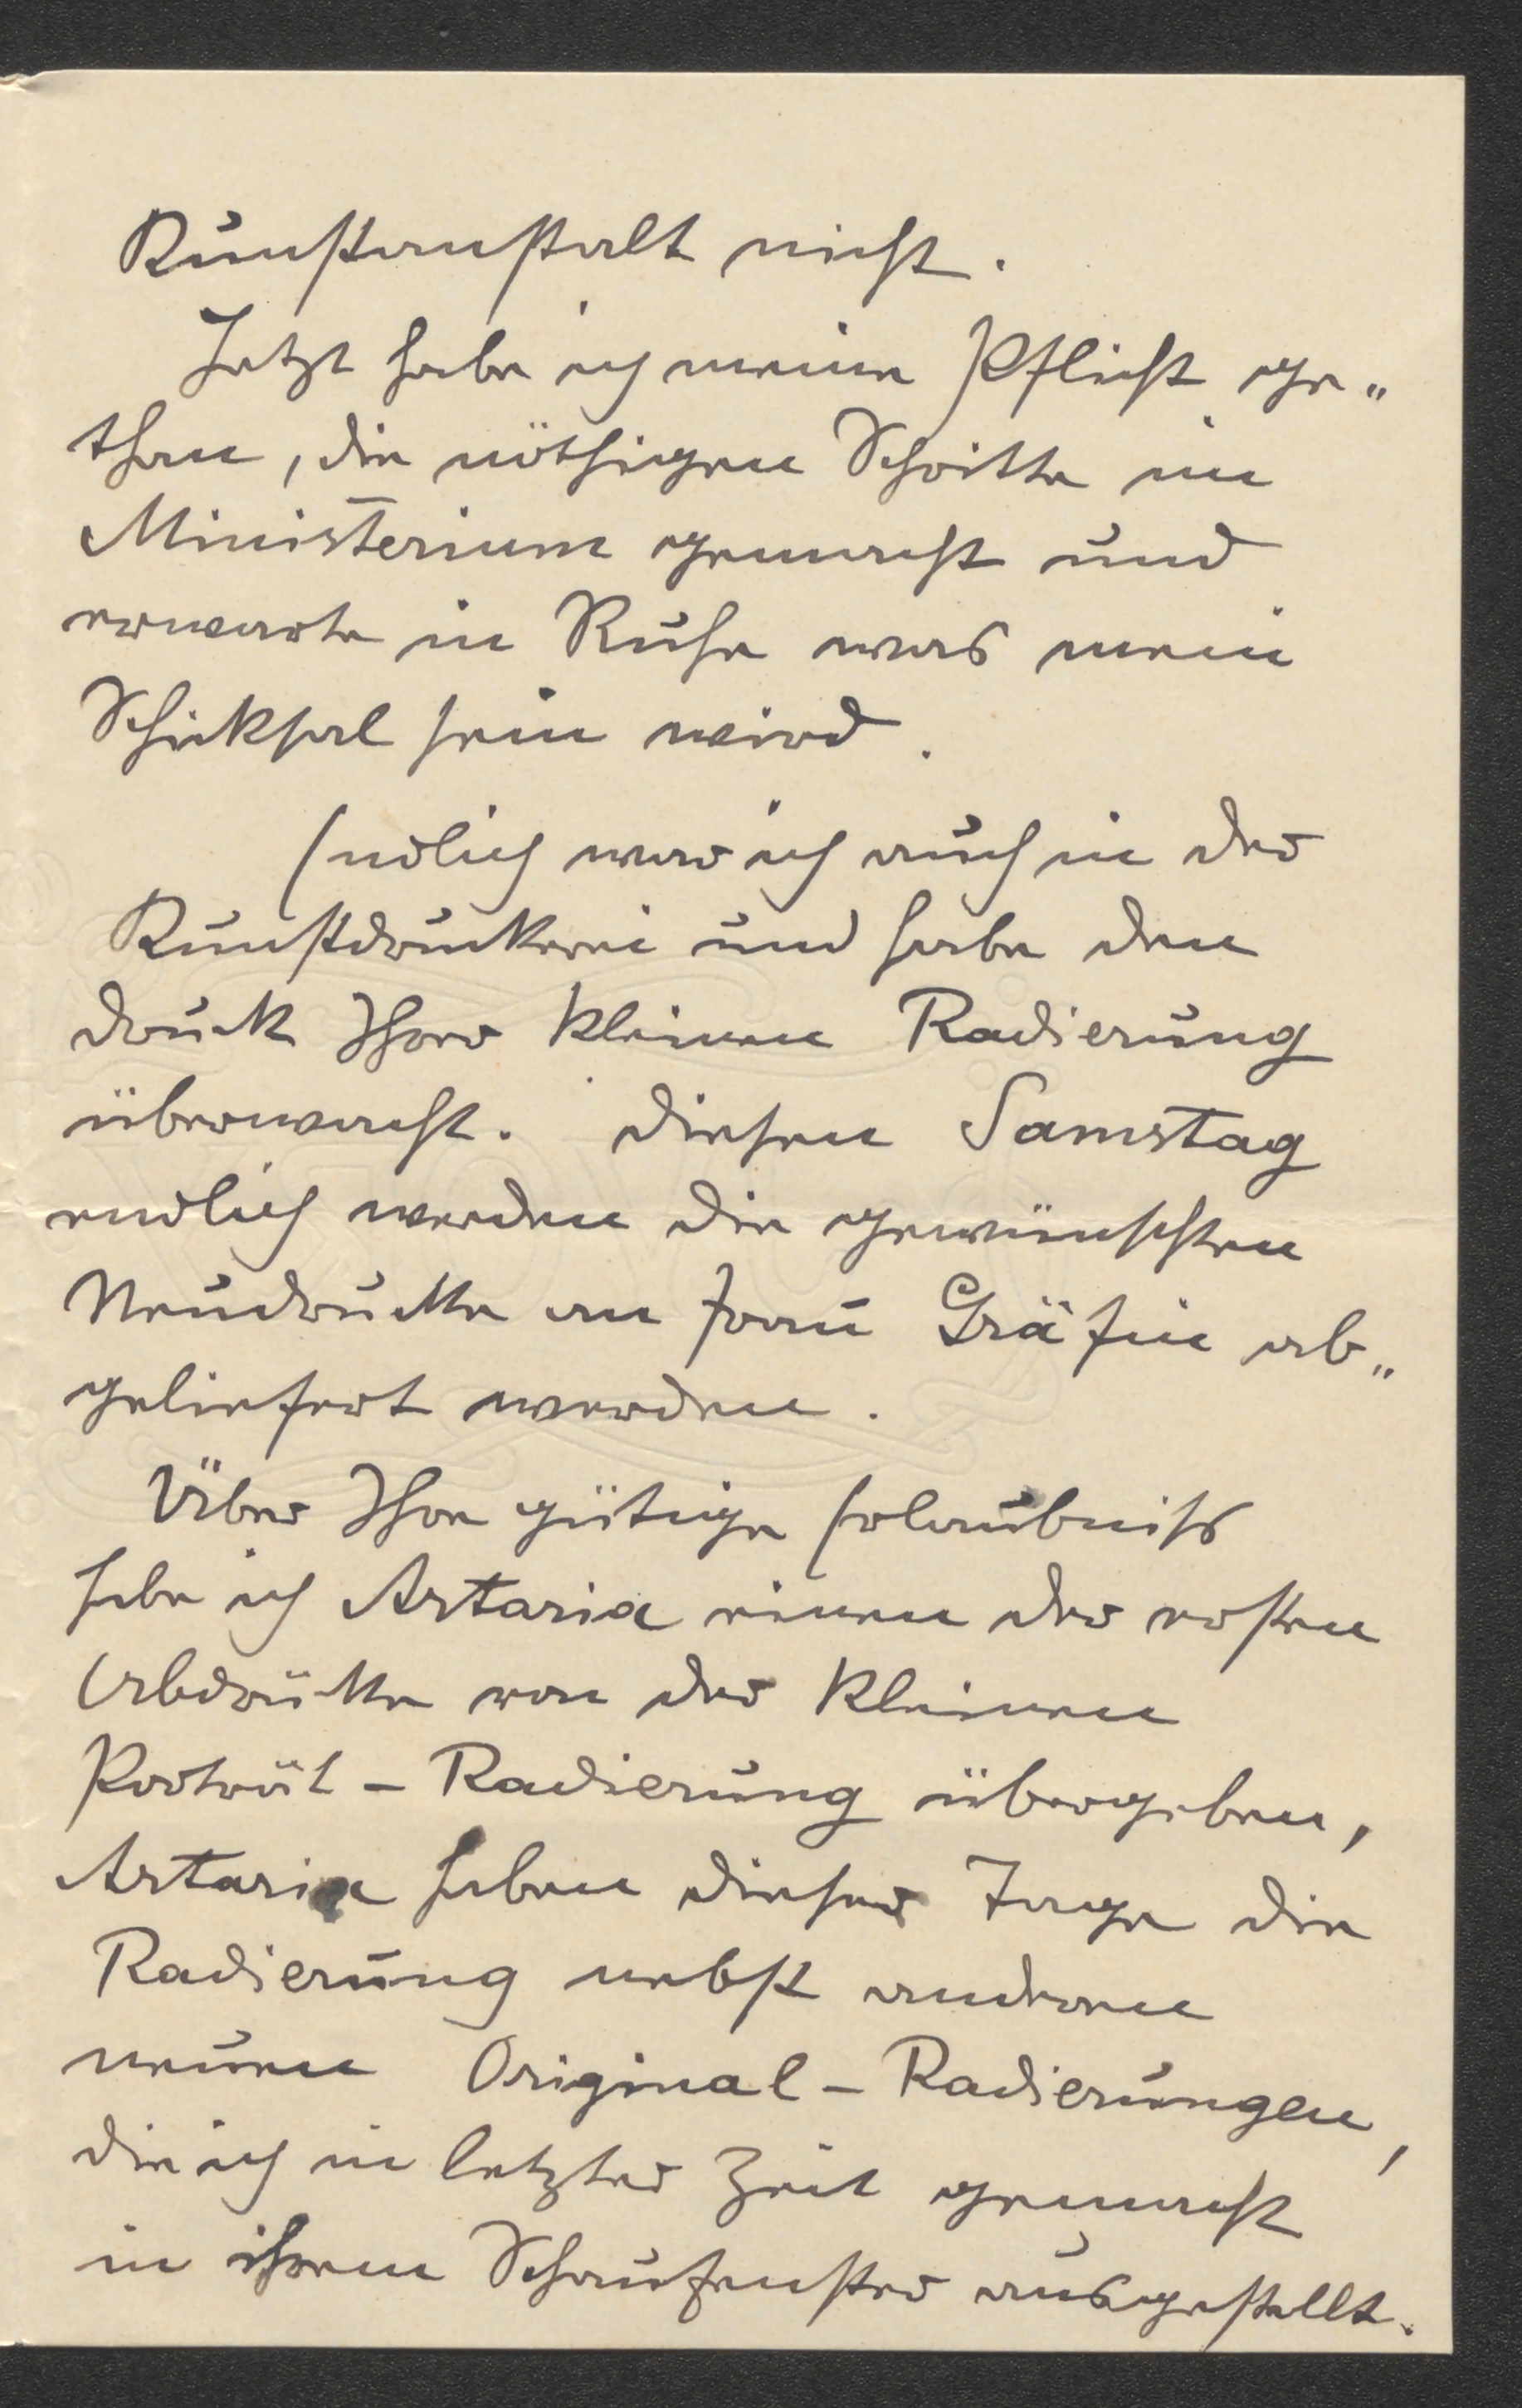 Kunstanstalt nicht.
Jetzt habe ich meine Pflicht ge„
than, die nöthigen Schritte im
Ministerium gemacht und
erwarte in Ruhe was mein
Schicksal sein wird.
Endlich war ich auch in der
Kunstdruckerei und habe den
Druck Ihrer kleinen Radierung
überwacht. Diesen Samstag
endlich werden die gewünschten
Neudrucke an Frau Gräfin ab„
geliefert werden.
Über Ihre gütige Erlaubniss
habe ich Artaria einen der ersten
Abdrücke von der kleinen
Porträt-Radierung übergeben,
Artaria haben dieser Tage die
Radierung nebst anderen
neuen Original-Radierungen,
die ich in letzter Zeit gemacht
in ihrem Schaufenster ausgestellt.